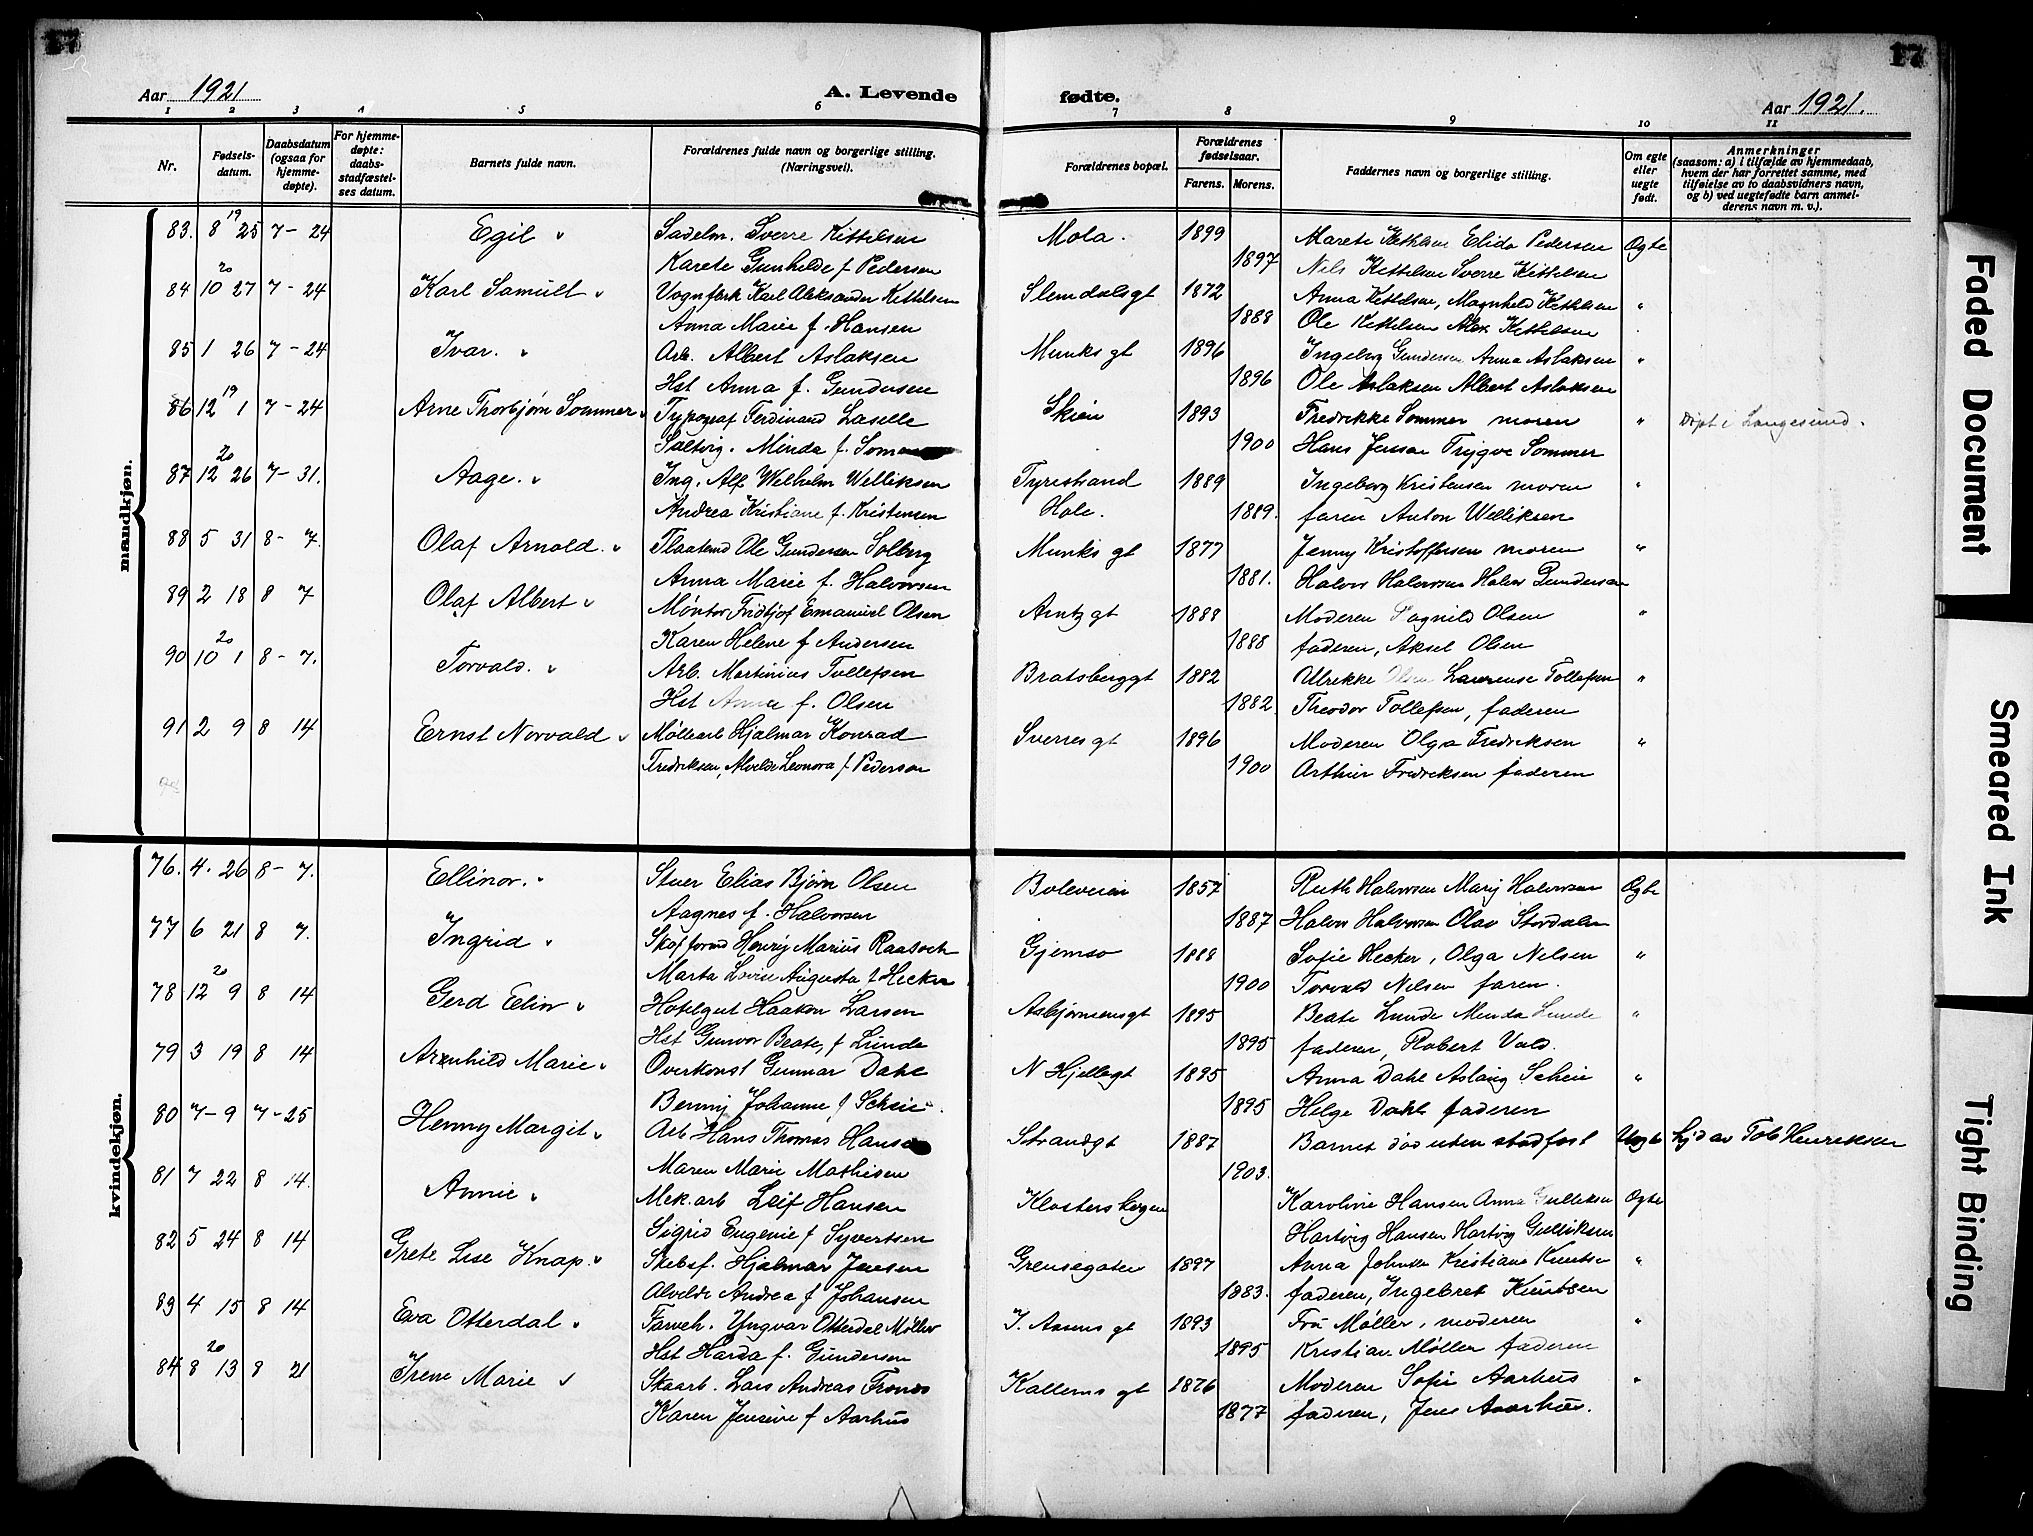 17
Aar 1921
A. Levende
fødte.
Aar 1921.
1 2 3 4 5 6 7 8 9 10 11
Nr.
Fødsels-
datum.
Daabsdatum
(ogsaa for
hjemme-
døpte).
For hjemme-
døpte:
daabs-
stadfæstel-
ses datum.
Barnets fulde navn.
Forældrenes fulde navn og borgerlige stilling.
(Næringsvei).
Forældrenes bopæl.
Forældrenes
fødselsaar.
Farens. Morens.
Faddernes navn og borgerlige stilling.
Om egte
eller
uegte
født.
Anmerkninger
(saasom: a) i tilfælde av hjemmedaab,
hvem der har forrettet samme, med
tilføielse av to daabsvidners navn,
og b) ved uegtefødte barn anmel-
derens navn m. v.).
mandkjøn.
83. 8 19 25 7-24 Egil Sadelm. Sverre Kittelsen Mola. 1899 Marete Kittelsen Elida Pedersen Egte
Karete Gunhilde f Pedersen 1897 Nils Kittelsen Sverre Kittelsen
84 10 20 27 7-24 Karl Samuel Vognførk Karl Aleksander Kittelsen Slemdalsgt 1872 Anna Kittelsen, Magnhild Kittelsen "
Anna Marie f. Hansen 1888 Ole Kittelsen Alex Kittelsen
85 1 26 7-24 Ivar. Arb. Albert Aslaksen Munks gt 1896 Ingeborg Gundersen Anna Aslaksen "
Hst Anna f. Gundersen 1896 Ole Aslaksen Albert Aslaksen
86 12 19 1 7-24 Arne Thorbjørn Sommer Typograf Ferdinand Laselle Skien 1893 Fredrikke Sommer moren " Døpt i Langesund.
Saltvig. Minda f. Sommer 1900 Hans Jensen Trygve Sommer
87 12 20 26 7-31. Aage. Ing. Alf Wilhelm Welliksen Tyristrand 1889 Ingeborg Kristensen moren "
Andrea Kristiane f. Kristensen Hole. 1889. faren Anton Welliksen
88 5 31 8-7. Olaf Arnold. Ole Gundersen Solberg Munks gt 1877 Jenny Kristoffersen moren "
Anna Marie f. Halvorsen 1881. Halvor Halvorsen Halvor Gundersen
89 2 18 8 7 Olaf Albert Montør Fridtjof Emanuel Olsen Arntz gt 1888 Moderen Ragnild Olsen "
Karen Helene f Andersen 1888 faderen, Aksel Olsen
90 10 20 1 8-7. Torvald. Arb. Martinius Tollefsen Bratsberggt 1882 Ulrikke Olsen Laurense Tollefsen "
Hst Anna f. Olsen 1882. Theodor Tollefsen, faderen
91 2 9 8 14 Ernst Norvald Møllearb Hjalmar Konrad Sverres gt 1896 Moderen Olga Fredriksen "
Fredriksen, Alvilde Leonora f Pedersen 1900 Arthur Fredriksen faderen
kvindekjøn.
76. 4. 26 8-7. Ellinor. Stuer Elias Bjørn Olsen Boleveien 1857 Ruth Halvorsen Marij Halvorsen Egte
Aagnes f. Halvorsen 1887 Halvor Halvorsen Olav Stordalen
77 6 21 8 7. Ingrid Henry Marius Raasoch Gjemsø 1888 Sofie Hecker, Olga Nilsen "
Marta Lovise Augusta f Hecker 1900 Torvald Nilsen faren.
78 12 20 9 8 14 Gerd Elin Hotelgut Haakon Larsen Asbjørnsensgt 1895 Beate Lunde Minda Lunde "
Hst Gunvor Beate, f Lunde 1895 faderen, Robert Vold.
79 3 19 8 14 Arnhild Marie Overkonst Gunnar Dahl N Hjellegt 1895 Anna Dahl Aslaug Scheie "
Benny Johanne f Scheie. 1895 Helge Dahl faderen
80 7-9 7-25 Henny Margit Arb Hans Thomas Hansen Strandgt 1887 Barnet død uten stadfest Uegte hjd av Tob Henriksen
Maren Marie Mathisen 1903.
81 7 22 8 14. Annie Mek. arb Leif Hansen Klostersbergen Karoline Hansen Anna Gulliksen Egte
Sigrid Eugenie f Syvertsen Hartvig Hansen Hartvig Gulliksen
82 5 24 8 14 Grete Lise Knap. Skibsf. Hjalmar Jensen Grensegaten 1897 Anna Johnsen Kristiane Knutsen "
Alvilde Andrea f Johansen 1883. faderen, Ingebret Knutsen
83 4 15 8 14 Eva Otterdal Farveh. Yngvar Otterdal Møller I. Aasens gt 1893 Fru Møller, moderen "
Hst Harda f. Gundersen 1895 Kristian Møller faderen
84 8 20 13 8 21 Irene Marie Skoarb. Lars Andreas Kallems gt 1876 Moderen Sofie Aarhus "
Karen Jensine f Aarhus 1877 faderen, Jens Aarhus.
Faded Document
Smeared Ink
Tight Binding